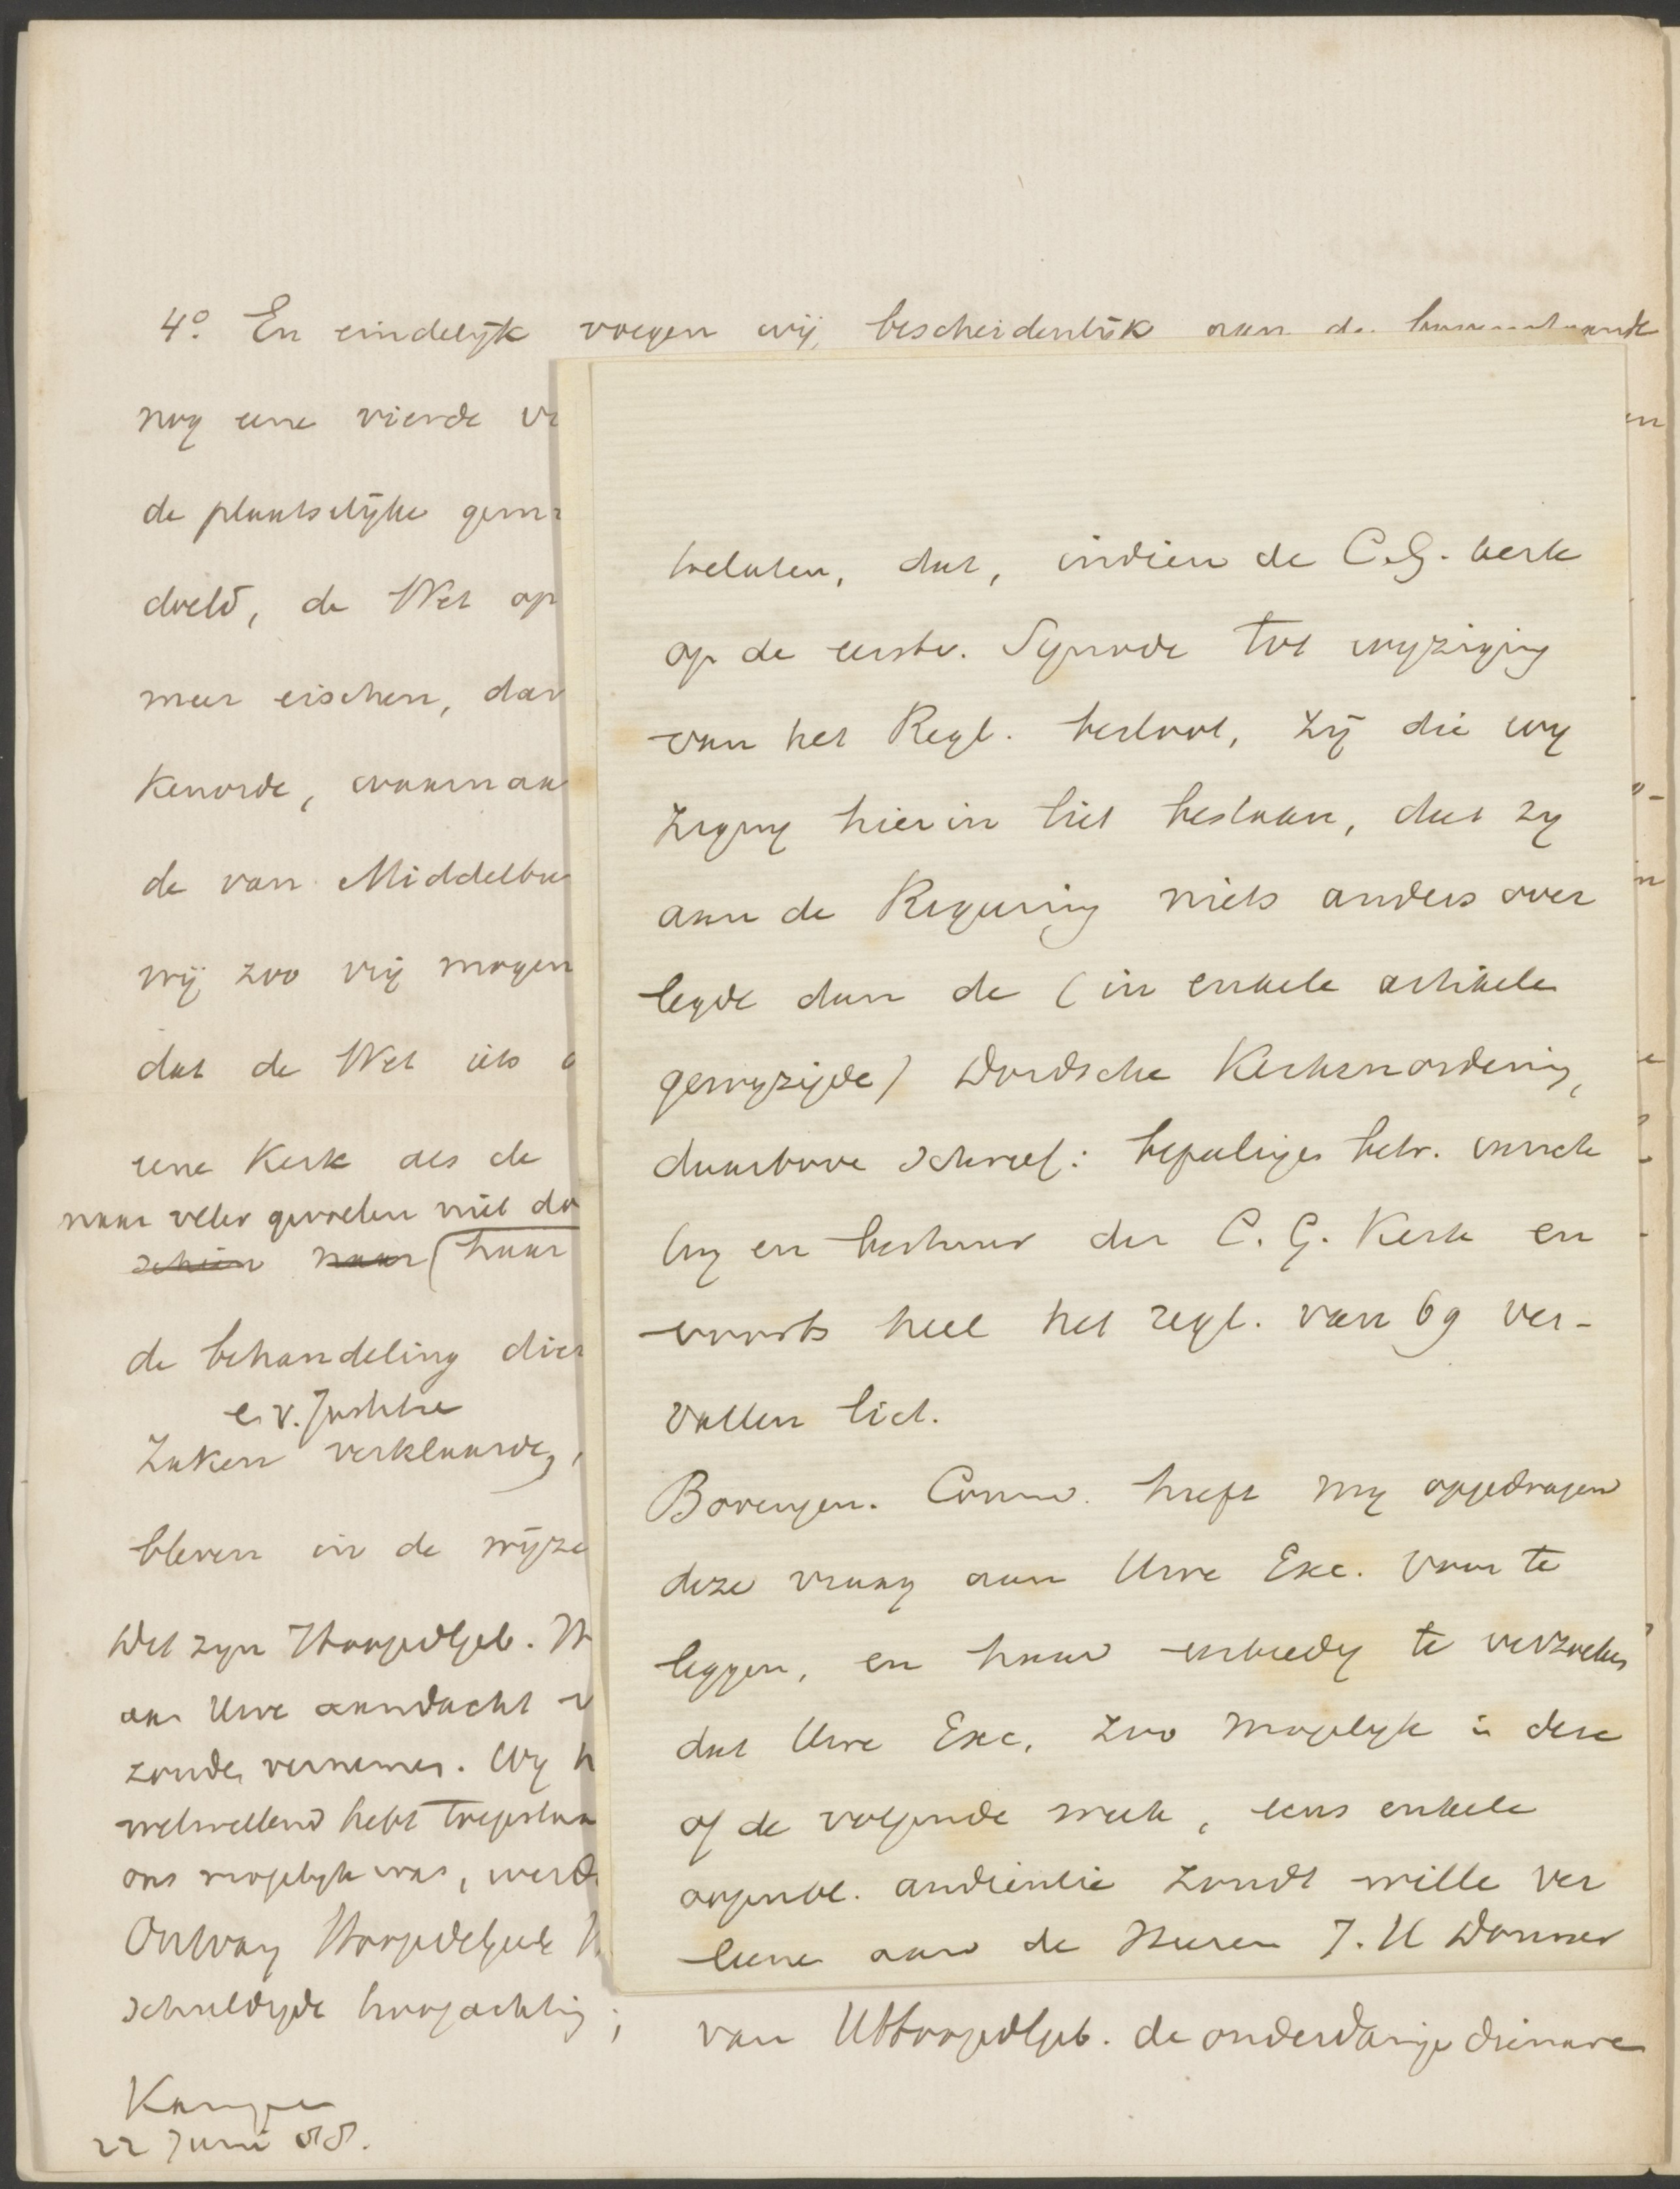 4o. En eindelijk voegen wij bescheidenlijk aan de
nog eene vierde
de plaatselijke
doeld, de Wet op
meer eischen, dan
Kenorde,
de van Middelbu
wij zoo vrij mogen
dat de Wet iets
eene Kerk als de
naar veler gevoelen niet
schien naar (haar
de behandeling
e. v. Justitie
Zaken verklaarde,
bleven in de wijze
Het zyn Hoogedlgeb.
aan Uwe aandacht
zouden vernemen. Wy
welwillend hebt toegestaan
ons mogelyk was,
Ontvang Hoogedelgeb
schuldigde hoogachting;
van UHoogedlgeb. de onderdanige dienaren
Kampen
22 Juni 88.
toelaten, dat, indien de C.G. kerk
op de eerstv. Synode tot wyziging
van het Regl. besloot, zij die wy
ziging hierin liet bestaan, dat zy
aan de Regeering niets anders over
legde dan de (in enkele artikelen
gewyzigde) Dordsche Kerkenordening,
daarboven schreef: bepalingen betr. inrich
ing en bestuur der C. G. Kerk en
voorts heel het regl. van 69 ver-
vallen liet.
Bovengen. Comm. heeft my opgedragen
deze vraag aan Uwe Exc. voor te
leggen, en haar eerbiedig te verzoeken
dat Uwe Exc. zoo mogelyk in deze
of de volgende week, eens enkele
oogenbl. audientie zoudt wille ver
leene aan de Heeren J. H Donner